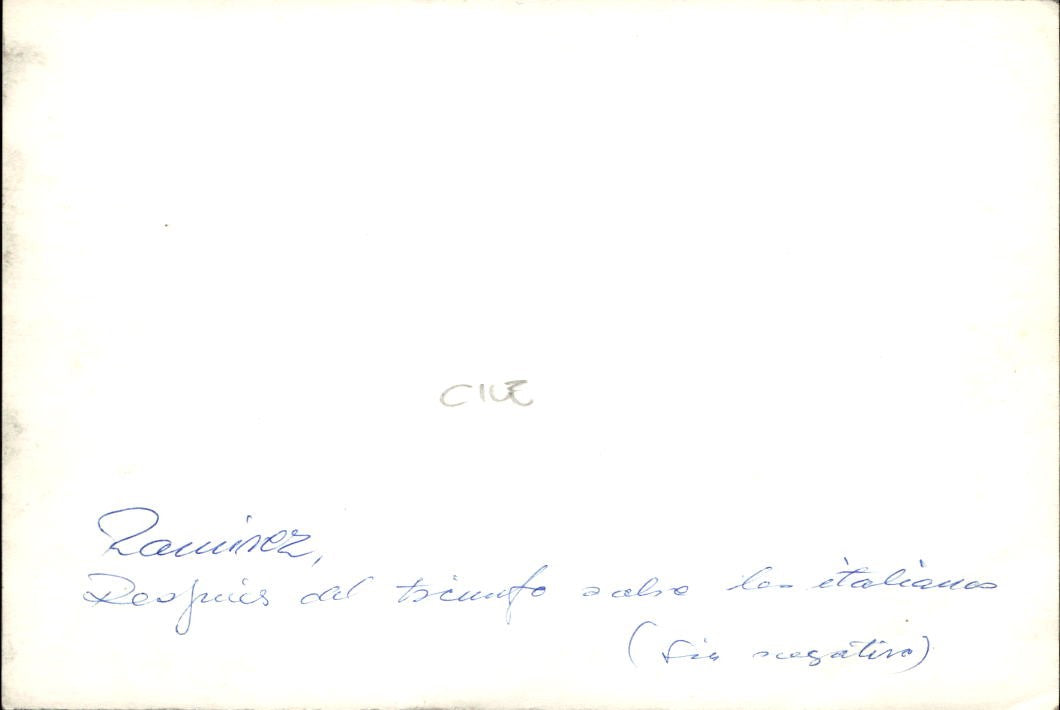 CILE
Ramírez,
Después del triunfo sobre los italianos
(sin negativo)